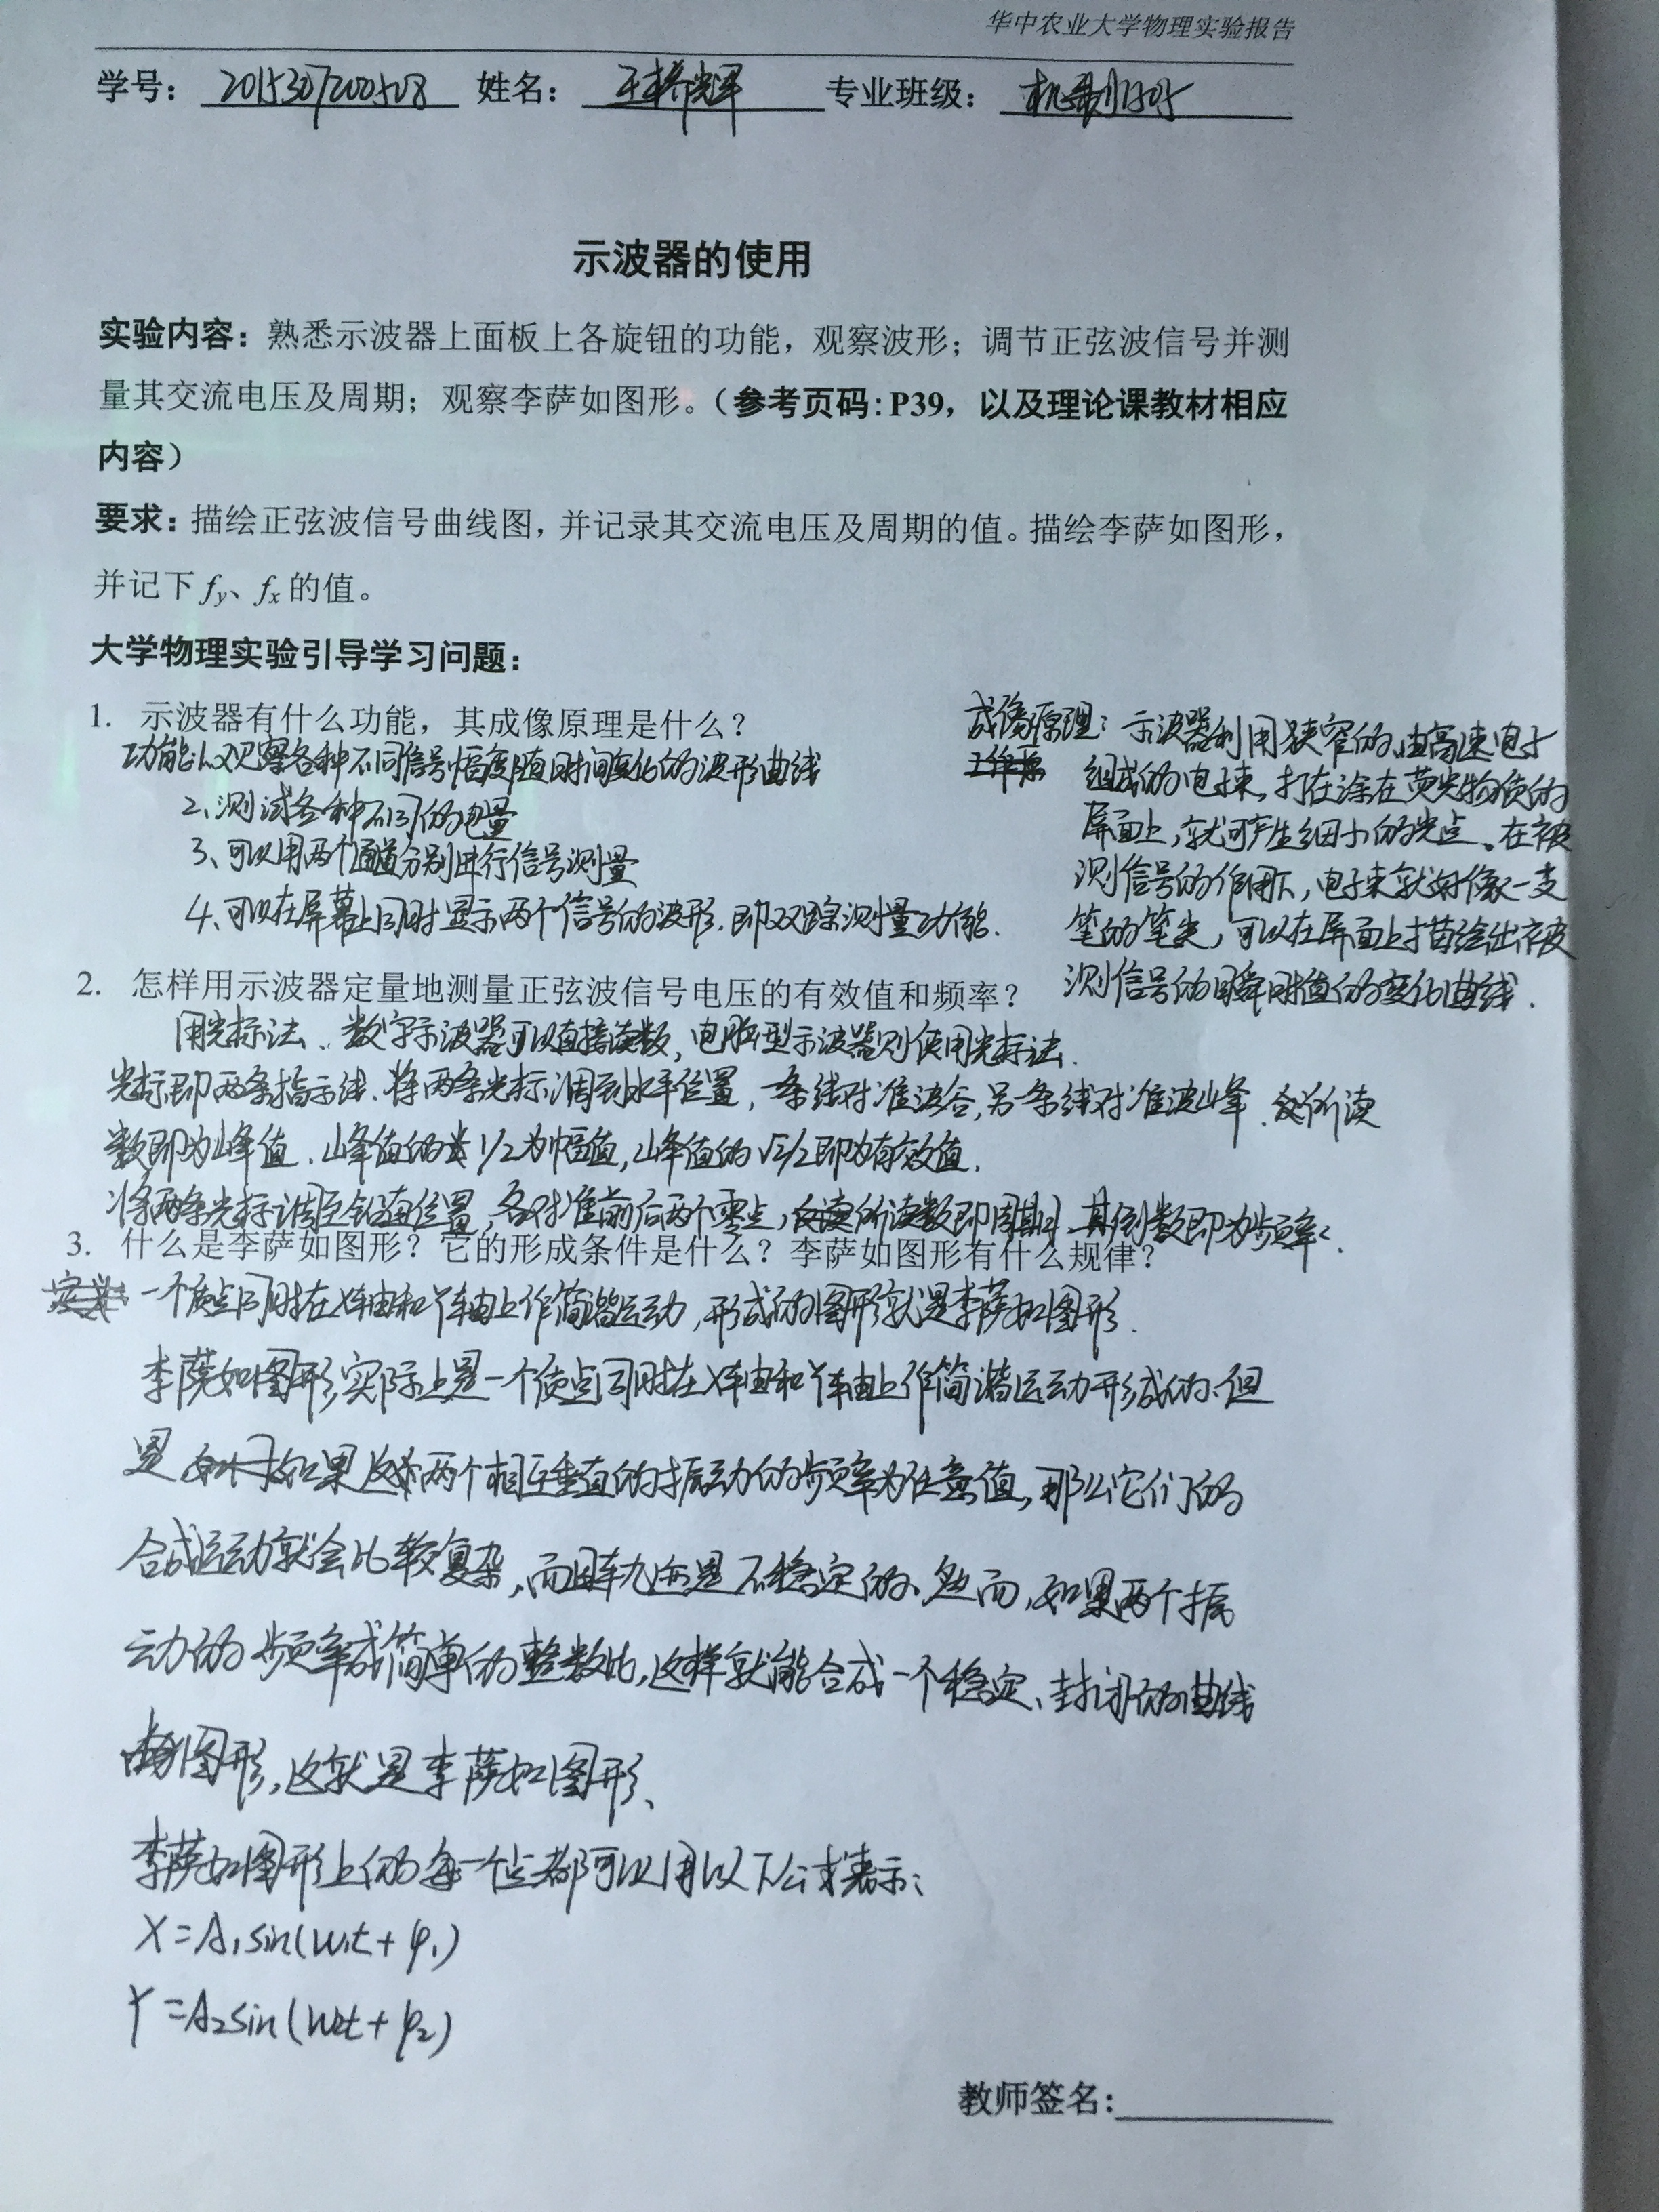 华中农业大学物理实验报告
学号： 2015307200508 姓名： 王 辉 专业班级： 机制1505
示波器的使用
实验内容：熟悉示波器上面板上各旋钮的功能，观察波形；调节正弦波信号并测
量其交流电压及周期；观察李萨如图形。（参考页码：P39，以及理论课教材相应
内容）
要求：描绘正弦波信号曲线图，并记录其交流电压及周期的值。描绘李萨如图形，
并记下 fy、fx 的值。
大学物理实验引导学习问题：
1. 示波器有什么功能，其成像原理是什么？
功能：1、观察各种不同信号幅度随时间变化的波形曲线
2、测试各种不同的电量
3、可以用两个通道分别进行信号测量
4、可以在屏幕上同时显示两个信号的波形，即双踪测量功能．
成像原理：示波器利用狭窄的、由高速电子
组成的电子束，打在涂在荧光物质的
屏面上，就可产生细小的光点。在被
测信号的作用下，电子束就好像一支
笔的笔尖，可以在屏面上描绘出被
测信号的瞬时值的变化曲线．
2. 怎样用示波器定量地测量正弦波信号电压的有效值和频率？
用光标法、数字示波器可以直接读数，电脑型示波器则使用光标法．
光标即两条指示线．将两条光标调到水平位置，一条线对准波谷，另一条线对准波峰．所读
数即为峰值．峰值的1/2为幅值，峰值的√2/2即为有效值．
将两条光标调至铅直位置，各对准前后两个零点，所读数即周期，其倒数即为频率．
3. 什么是李萨如图形？它的形成条件是什么？李萨如图形有什么规律？
一个质点同时在X轴和Y轴上作简谐运动，形成的图形就是李萨如图形．
李萨如图形实际上是一个质点同时在X轴和Y轴上作简谐运动形成的．但
是，如果这两个相互垂直的振动的频率为任意值，那么它们的
合成运动就会比较复杂，而且轨迹是不稳定的．然而，如果两个振
动的频率成简单的整数比，这样就能合成一个稳定、封闭的曲线
图形，这就是李萨如图形、
李萨如图形上的每一个点都可以用以下公式表示：
X=A₁sin(w₁t+φ₁)
Y=A₂sin(w₂t+φ₂)
教师签名：